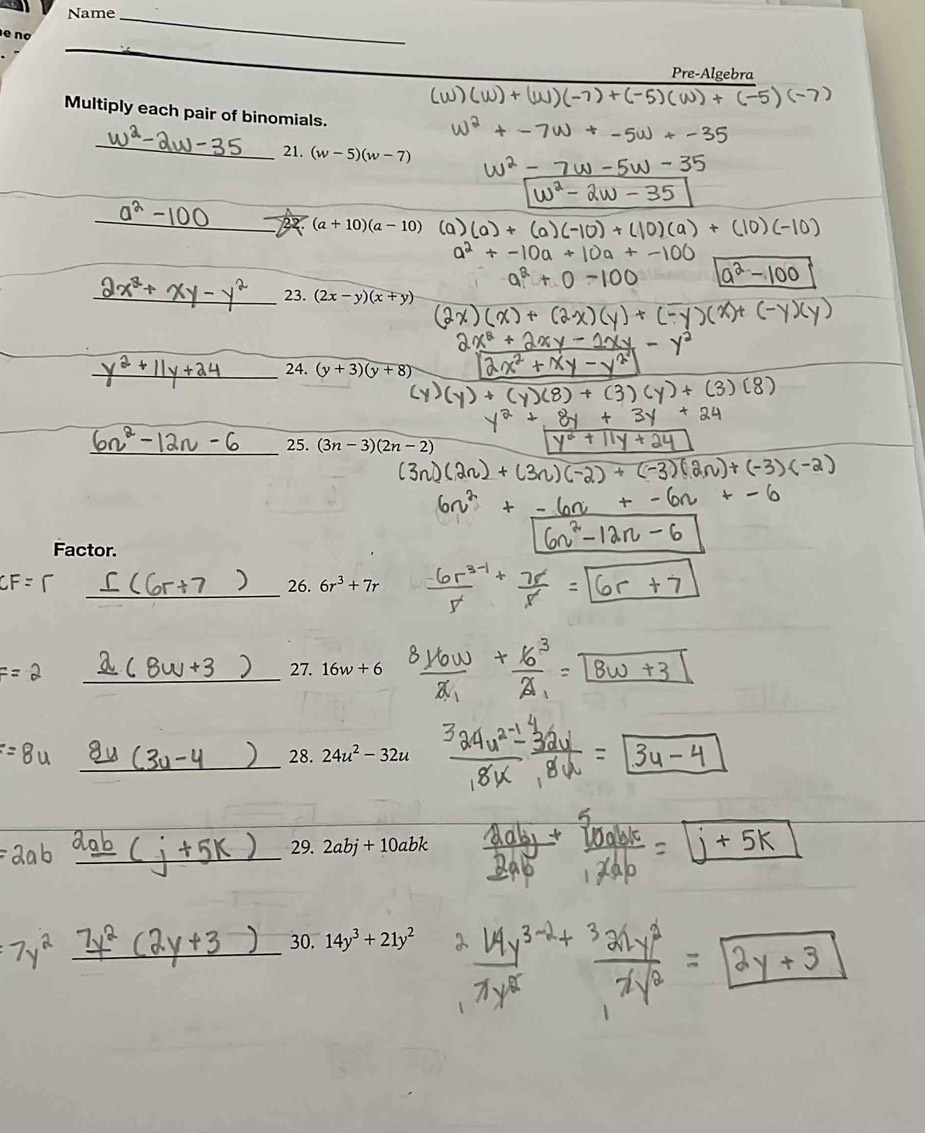 Name
e no
Pre-Algebra
(w)(w) + (w)(-7) + (-5)(w) + (-5)(-7)
Multiply each pair of binomials.
w² + -7w + -5w + -35
w²-2w-35 21. (w − 5)(w − 7)
w² - 7w - 5w - 35
w² - 2w - 35
a² - 100 22. (a + 10)(a − 10) (a)(a) + (a)(-10) + (10)(a) + (10)(-10)
a² + -10a + 10a + -100
a² + 0 - 100 a² - 100
2x² + xy - y² 23. (2x − y)(x + y)
(2x)(x) + (2x)(y) + (-y)(x) + (-y)(y)
2x² + 2xy - 1xy - y²
2x² + xy - y²
y² + 11y + 24 24. (y + 3)(y + 8)
(y)(y) + (y)(8) + (3)(y) + (3)(8)
y² + 8y + 3y + 24
y² + 11y + 24
6n² - 12n - 6 25. (3n − 3)(2n − 2)
(3n)(2n) + (3n)(-2) + (-3)(2n) + (-3)(-2)
6n² + -6n + -6n + -6
6n² - 12n - 6
Factor.
CF = r r (6r+7) 26. 6r³ + 7r 6r³⁻¹/r + 7r/r = 6r + 7
F = 2 2 (8w+3) 27. 16w + 6 8 16w/2 1 + 6 3/2 1 = 8w + 3
= 8u 8u (3u-4) 28. 24u² − 32u 3 24u²⁻¹/1 8u - 4 32u/1 8u = 3u - 4
= 2ab 2ab (j + 5k) 29. 2abj + 10abk 2abj/2ab + 5 10abk/1 2ab = j + 5k
= 7y² 7y² (2y+3) 30. 14y³ + 21y² 2 14y³⁻²/1 7y² + 3 21y²/1 7y² = 2y + 3